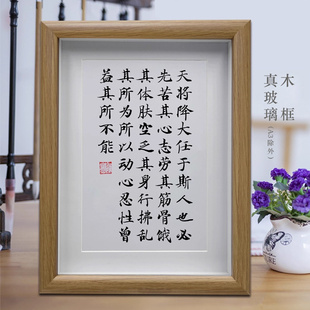 天将降大任于斯人也必
先苦其心志劳其筋骨饿
其体肤空乏其身行拂乱
其所为所以动心忍性曾
益其所不能
木框
真玻璃
(A3除外)